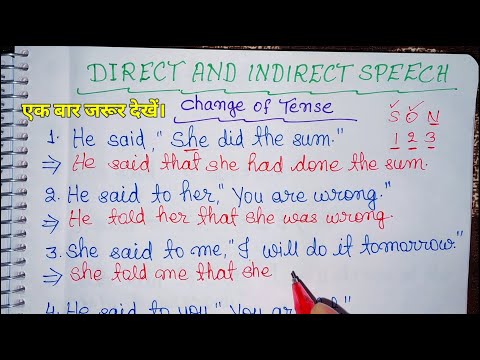 DIRECT AND INDIRECT SPEECH
एक बार जरूर देखें।
Change of Tense
S O N
1 2 3
1. He said, "She did the sum."
⇒ He said that she had done the sum.
2. He said to her, "You are wrong."
⇒ He told her that she was wrong.
3. She said to me, "I will do it tomorrow"
⇒ She told me that she
4. He said to you "You are